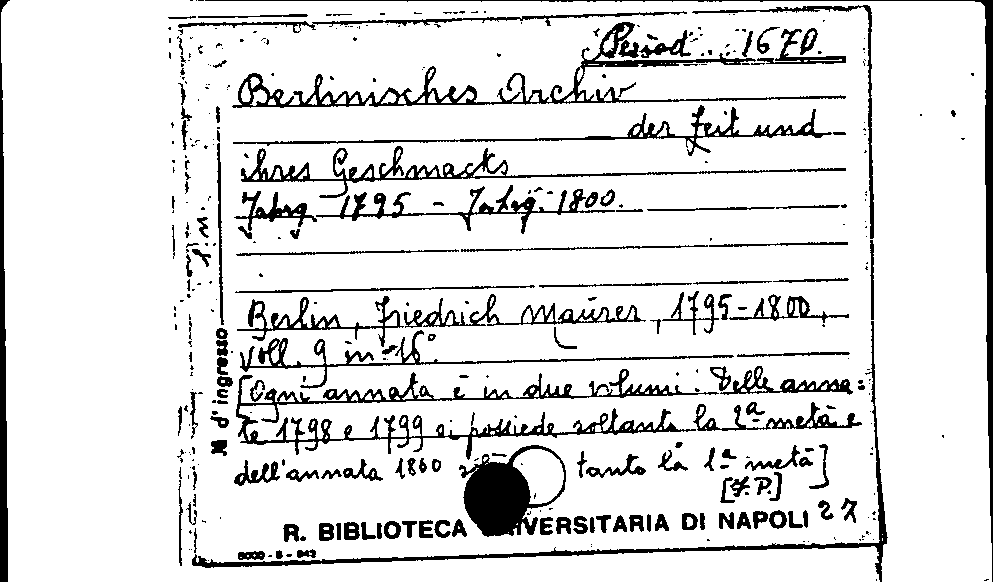 Period. 1670.
Berlinisches Archiv
der Zeit und
ihres Geschmacks
Jahrg. 1795 - Jahrg. 1800.
Berlin, Friedrich Maurer, 1795-1800,
voll. 9 in-16°.
[Ogni annata è in due volumi: Delle anna=
te 1798 e 1799 si possiede soltanto la 2ª metà e
dell'annata 1800 soltanto la 1ª metà]
[F.P.]
R. BIBLIOTECA UNIVERSITARIA DI NAPOLI 27
6000 - 8 - 942
N d'ingresso